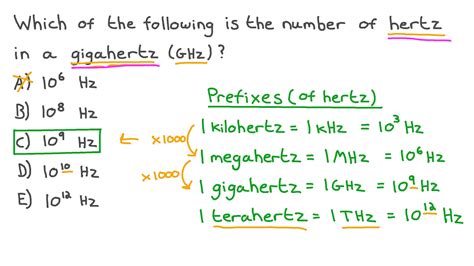 Which of the following is the number of hertz
in a gigahertz (GHz)?
A) 10⁶ Hz
B) 10⁸ Hz
C) 10⁹ Hz
D) 10¹⁰ Hz
E) 10¹² Hz
Prefixes (of hertz)
1 kilohertz = 1 kHz = 10³ Hz
x1000
1 megahertz = 1 MHz = 10⁶ Hz
x1000
1 gigahertz = 1 GHz = 10⁹ Hz
1 terahertz = 1 THz = 10¹² Hz